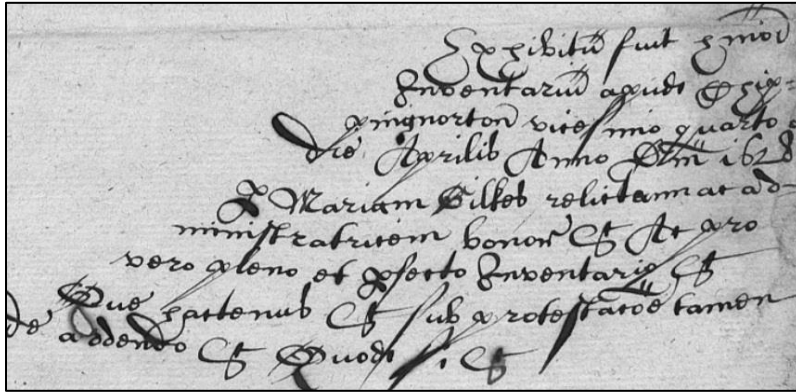 Exhibitũ fuit hmõi
Inventariũ apud Chip-
pingnorton vicesimo quarto
die Aprilis Anno Dñi 1628
p Mariam Gilkes relictam ac ad-
ministratricem bonor &c Ac pro
vero pleno et pfecto Inventario &c
Que hactenus &c sub protestacõe tamen
de addendo &c Quod si &c